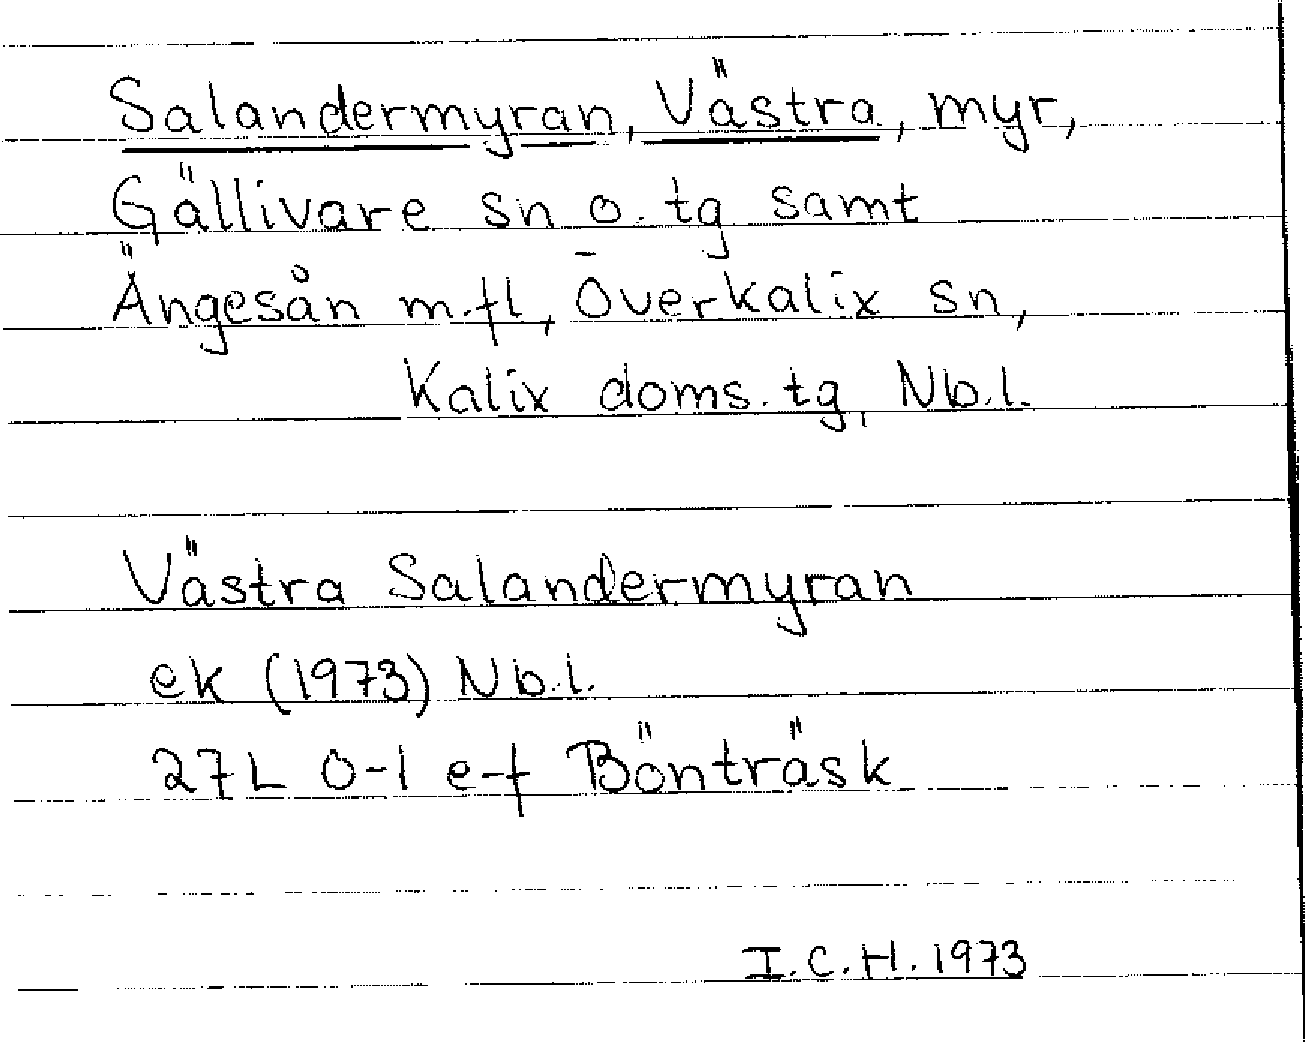 Salandermyran, Västra, myr,
Gällivare sn o. tg samt
Ängesån m.fl, Överkalix sn,
Kalix doms. tg, Nb.l.
Västra Salandermyran
ek (1973) Nb.l.
27L 0-1 e-f Bönträsk
I.C.H. 1973